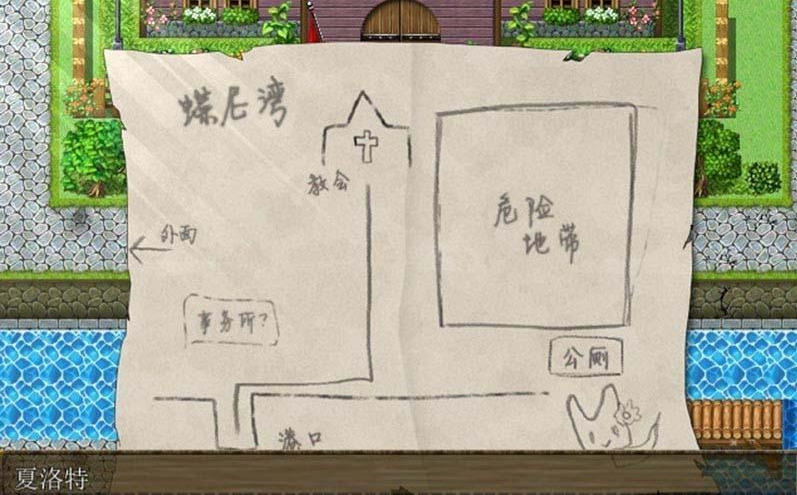 蝶尼湾
教会
外面
危险
地带
事务所?
公厕
港口
夏洛特